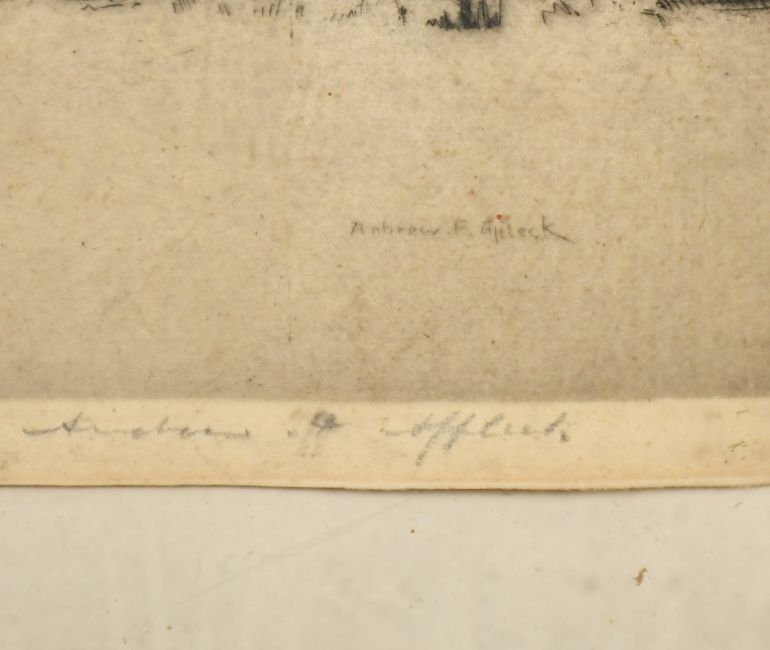 Andrew. F. Affleck
Andrew F Affleck